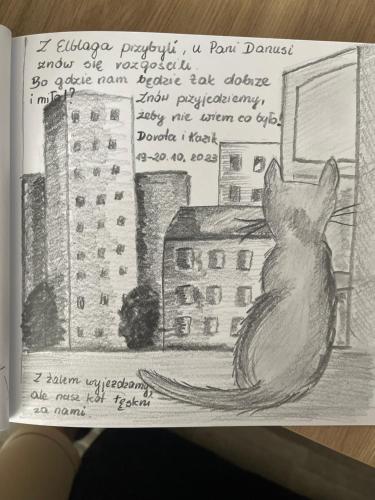 Z Elbląga przybyli, u Pani Danusi
znów się rozgościli.
Bo gdzie nam będzie tak dobrze
i miło!?
Znów przyjedziemy,
żeby nie wiem co było!
Dorota i Kazik
19-20.10.2023
Z żalem wyjeżdżamy,
ale nasz kot tęskni
za nami